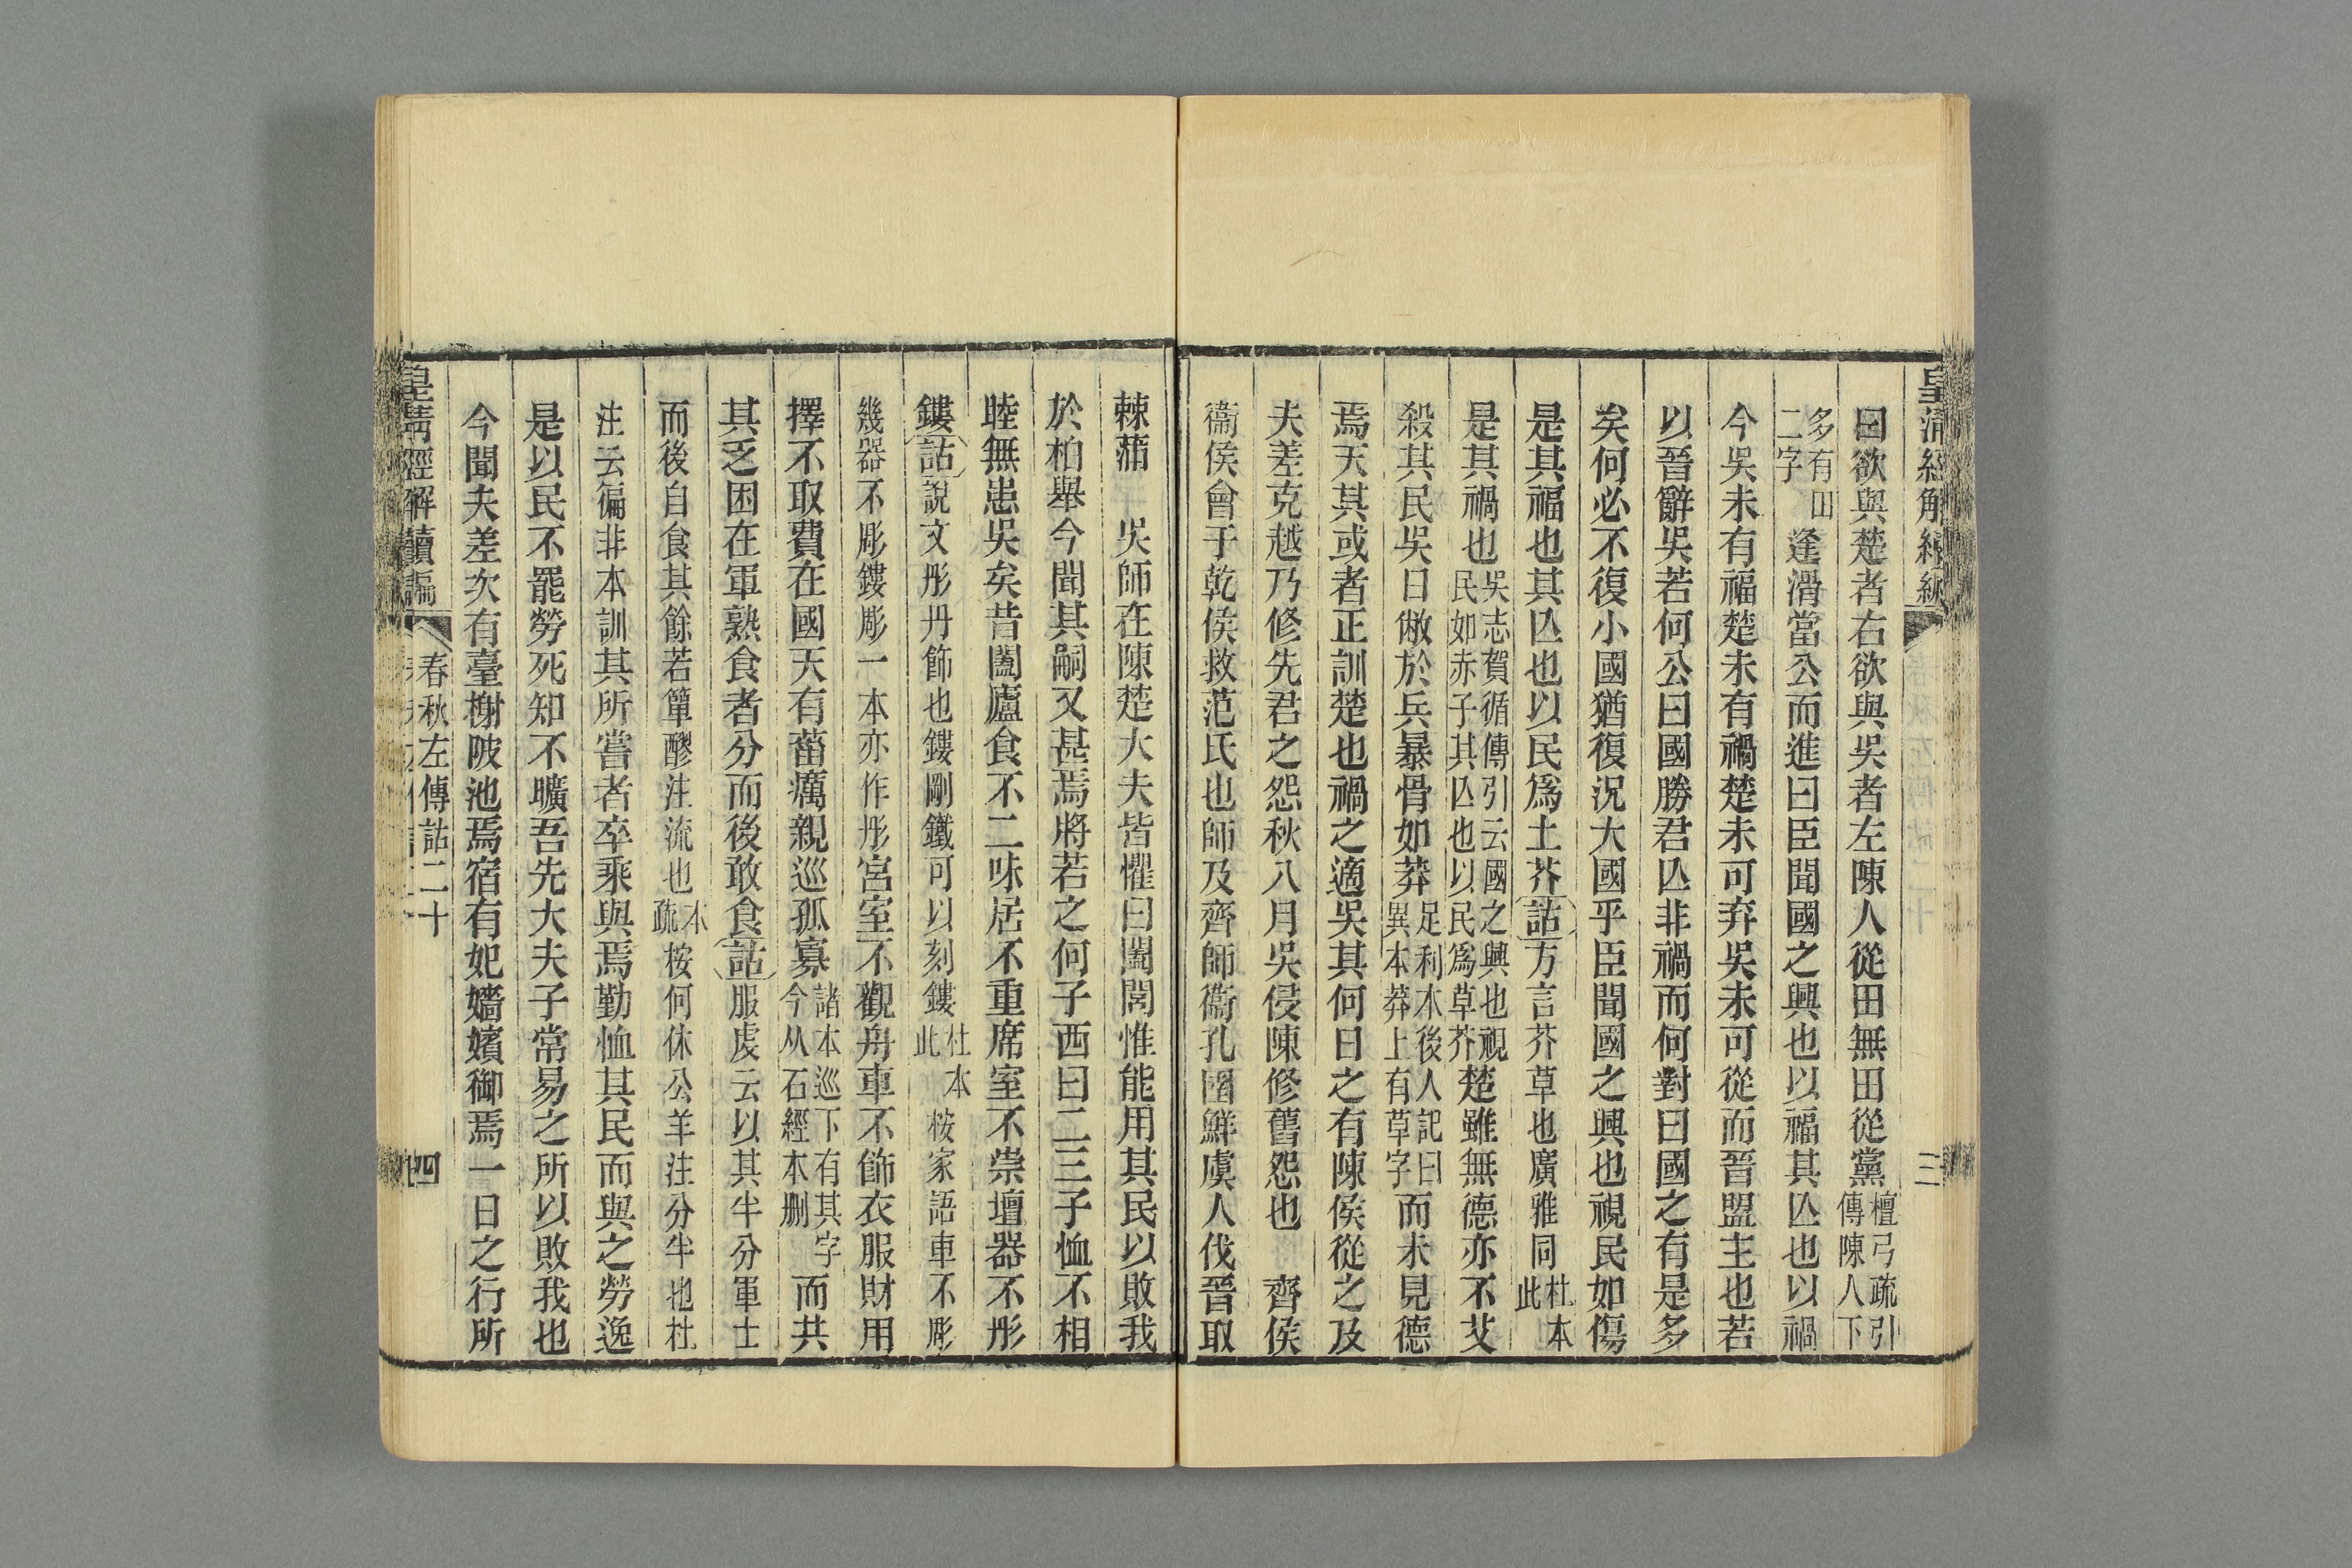 皇清經解續編
三
曰欲與楚者右欲與吳者左陳人從田無田從黨檀弓疏引傳陳人下
多有田二字逢滑當公而進曰臣聞國之興也以福其亾也以禍
今吳未有福楚未有禍楚未可弃吳未可從而晉盟主也若
以晉辭吳若何公曰國勝君亾非禍而何對曰國之有是多
矣何必不復小國猶復況大國乎臣聞國之興也視民如傷
是其福也其亾也以民爲土芥詁方言芥草也廣雅同杜本此
是其禍也吳志賀循傳引云國之興也視民如赤子其亾也以民爲草芥楚雖無德亦不艾
殺其民吳日敝於兵暴骨如莽足利本後人記曰異本莽上有草字而未見德
焉天其或者正訓楚也禍之適吳其何日之有陳侯從之及
夫差克越乃修先君之怨秋八月吳侵陳修舊怨也　齊侯
衞侯會于乾侯救范氏也師及齊師衞孔圉鮮虞人伐晉取
棘蒲　吳師在陳楚大夫皆懼曰闔閭惟能用其民以敗我
於柏舉今聞其嗣又甚焉將若之何子西曰二三子恤不相
睦無患吳矣昔闔廬食不二味居不重席室不崇壇器不彤
鏤詁說文彤丹飾也鏤剛鐵可以刻鏤杜本此桉家語車不彫
幾器不彫鏤彫一本亦作彤宮室不觀舟車不飾衣服財用
擇不取費在國天有菑癘親巡孤寡諸本巡下有其字今从石經本刪而共
其乏困在軍熟食者分而後敢食詁服虔云以其半分軍士
而後自食其餘若簞醪注流也本疏桉何休公羊注分半也杜
注云徧非本訓其所嘗者卒乘與焉勤恤其民而與之勞逸
是以民不罷勞死知不曠吾先大夫子常易之所以敗我也
今聞夫差次有臺榭陂池焉宿有妃嬙嬪御焉一日之行所
皇清經解續編
春秋左傳詁二十
四